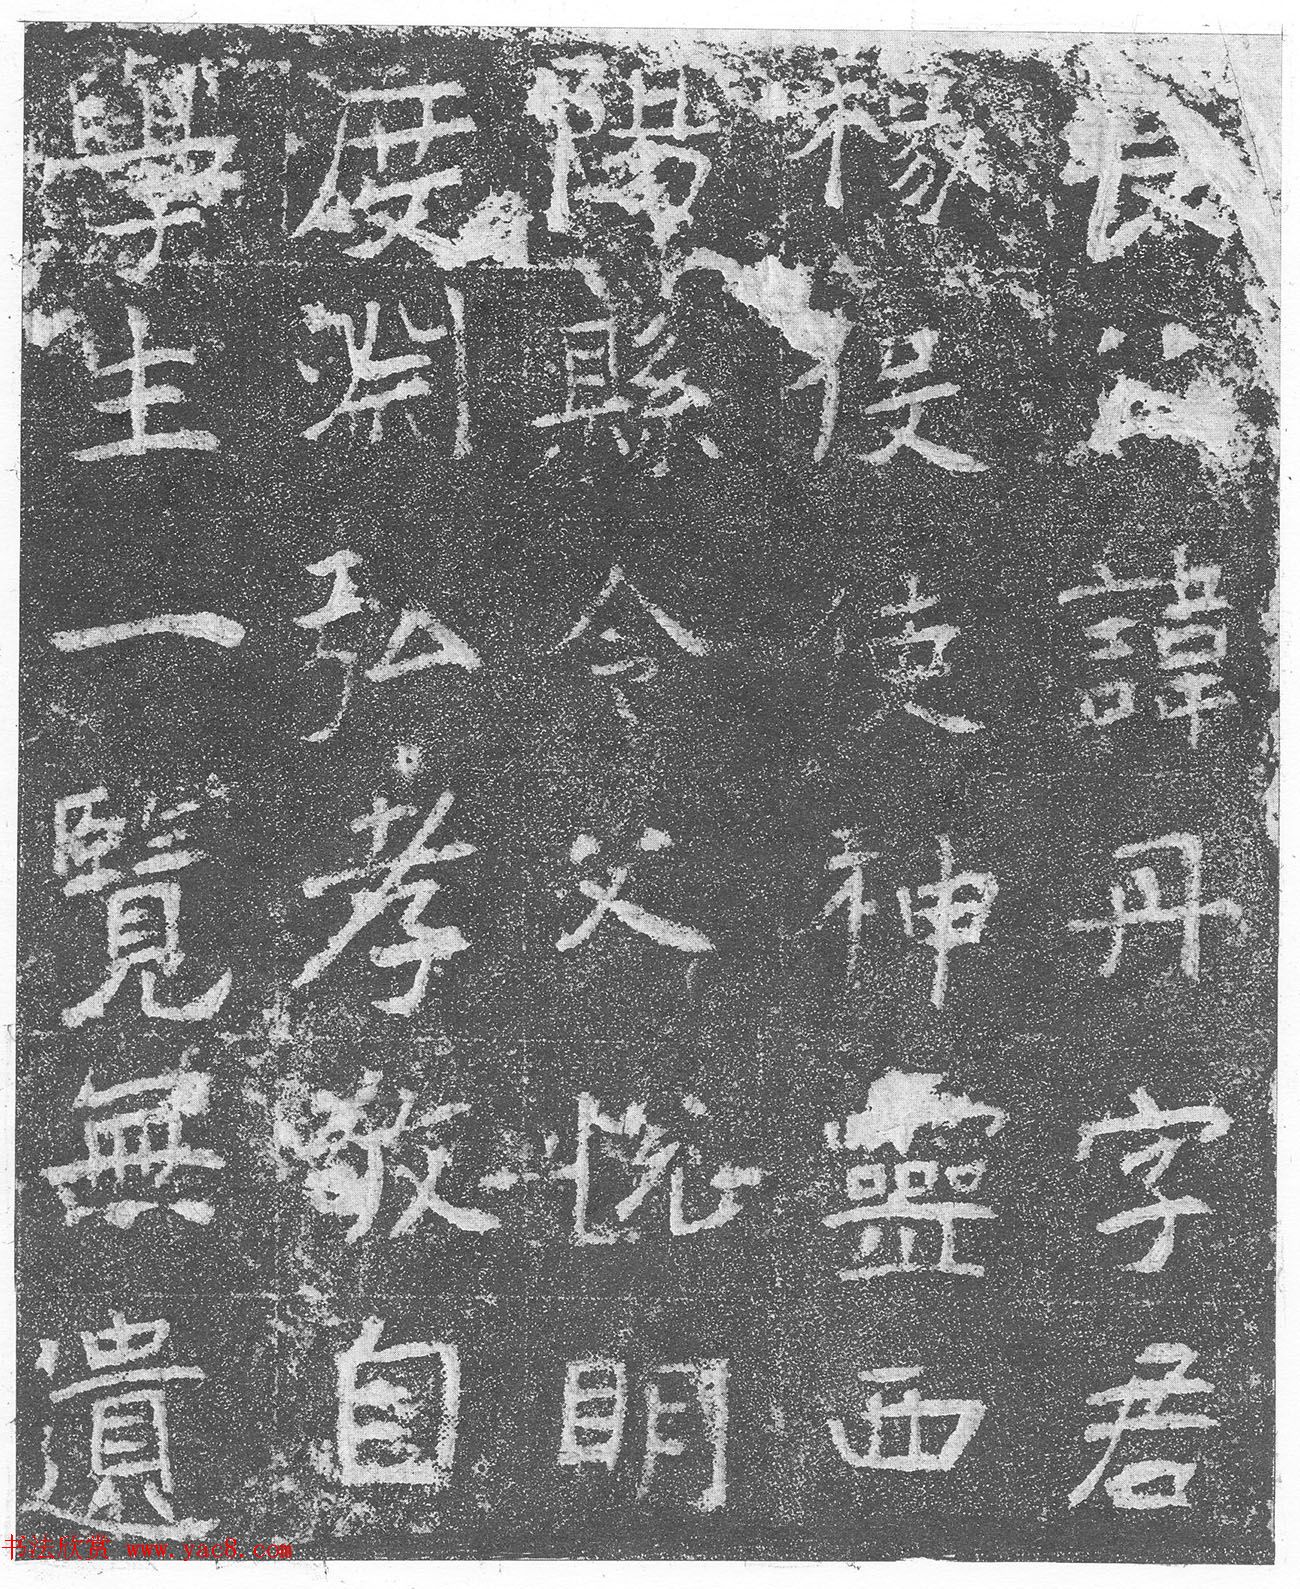 良公諱丹字君
楊從史神靈西
陽縣令父悅明
度淵弘孝敬自
學生一覽無遺
书法欣赏 www.yac8.com